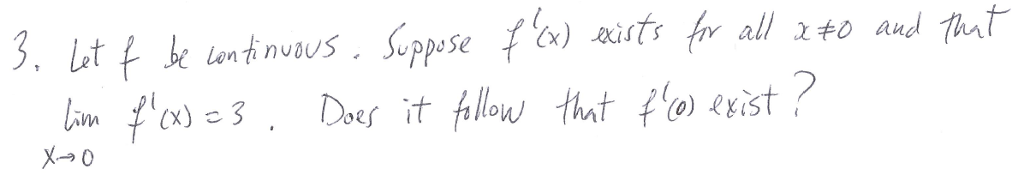 3. Let f be continuous. Suppose f'(x) exists for all x≠0 and that
lim f'(x) = 3. Does it follow that f'(0) exist?
x→0